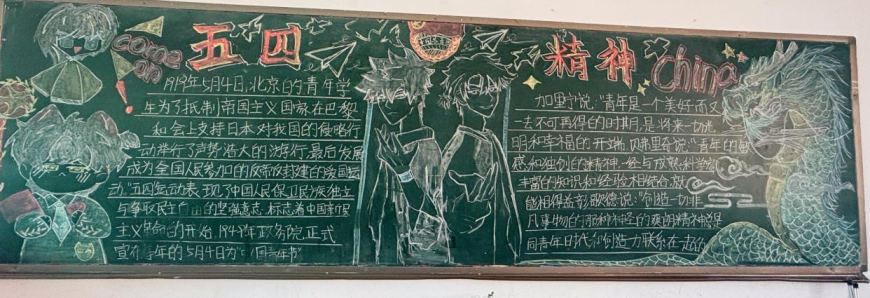 come on
五四
精神
China
1919年5月4日,北京的青年学
生为了抵制帝国主义国家在巴黎
和会上支持日本对我国的侵略行
动举行了声势浩大的游行,最后发展
成为全国人民参加的反帝反封建的爱国运
动。五四运动表现了中国人民保卫民族独立
与争取民主自由的坚强意志,标志着中国新民
主义革命的开始,1949年政务院正式
宣布每年的5月4日为中国青年节
加里宁说:"青年是一个美好而又
一去不可再得的时期,是将来一切光
明和幸福的开端。贝弗里奇说:"青年的敏
感和独创的精神,一经与成熟科学家
丰富的知识和经验相结合,就
能相得益彰。歌德说:"创造一切非
凡事物的那种神圣的爽朗精神总是
同青年时代和创造力联系在一起的